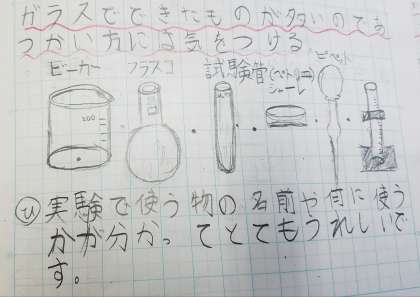 ガラスでできたものが多いので
つかい方には気をつける
ビーカー フラスコ 試験管 (ペトリ皿) ピペット
シャーレ
200
ひ 実験で使う物の名前や何に使う
かが分かってとてもうれしいで
す。